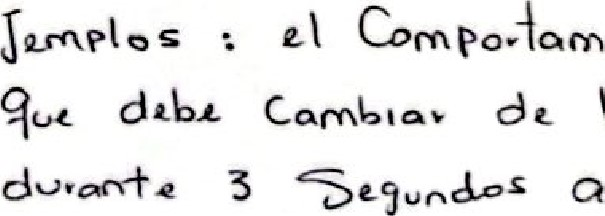 Jemplos : el Comportam
que debe Cambiar de l
durante 3 Segundos a